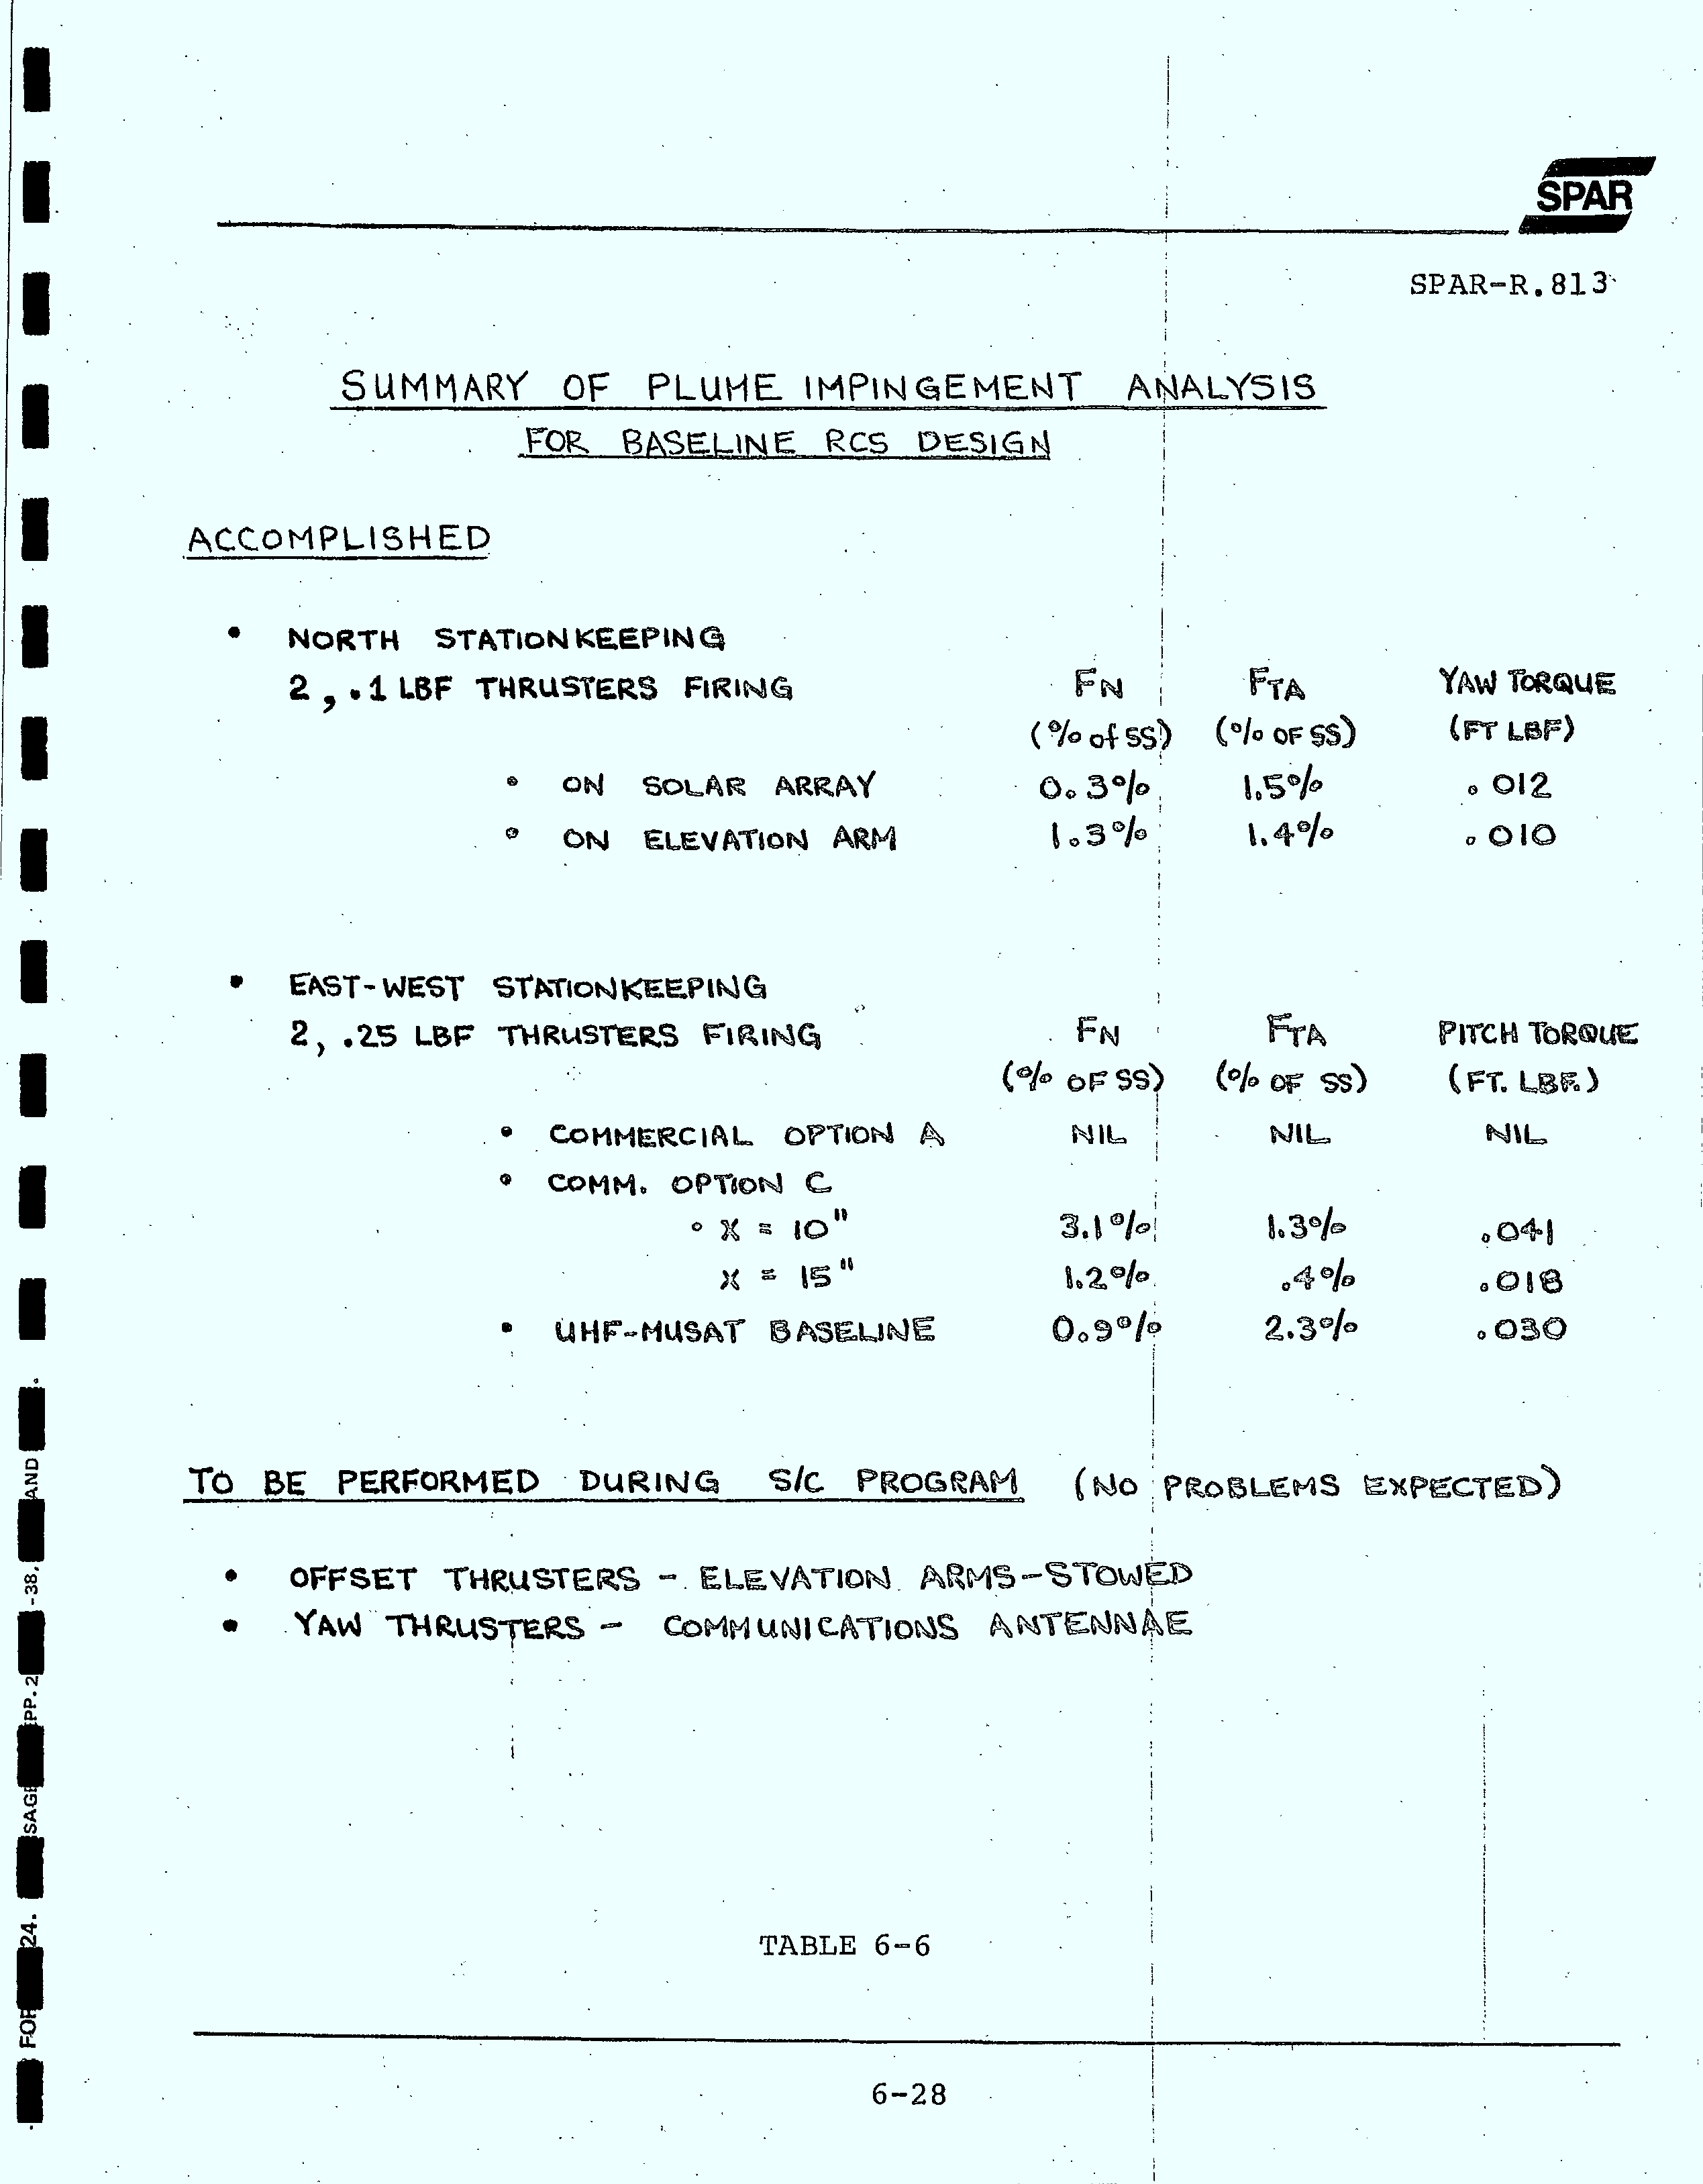 SPAR
SPAR-R.813
SUMMARY OF PLUME IMPINGEMENT ANALYSIS
FOR BASELINE RCS DESIGN
ACCOMPLISHED
• NORTH STATIONKEEPING
2, .1 LBF THRUSTERS FIRING FN FTA YAW TORQUE
(% of SS) (% OF SS) (FT LBF)
• ON SOLAR ARRAY 0.3% 1.5% .012
• ON ELEVATION ARM 1.3% 1.4% .010
• EAST-WEST STATIONKEEPING
2, .25 LBF THRUSTERS FIRING FN FTA PITCH TORQUE
(% OF SS) (% OF SS) (FT. LBF.)
• COMMERCIAL OPTION A NIL NIL NIL
• COMM. OPTION C
• X = 10" 3.1% 1.3% .041
X = 15" 1.2% .4% .018
• UHF-MUSAT BASELINE 0.9% 2.3% .030
TO BE PERFORMED DURING S/C PROGRAM (NO PROBLEMS EXPECTED)
• OFFSET THRUSTERS - ELEVATION ARMS-STOWED
• YAW THRUSTERS - COMMUNICATIONS ANTENNAE
TABLE 6-6
6-28
FOR 24. SAGE PP. 2 -38, AND